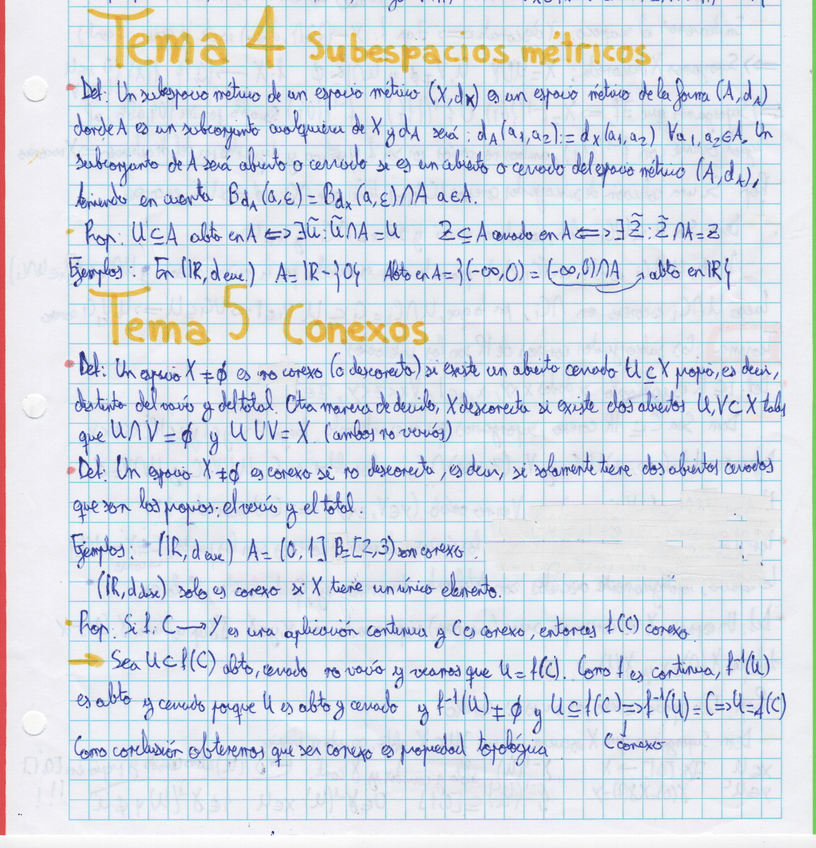 Tema 4 Subespacios métricos
Def: Un subespacio métrico de un espacio métrico (X,dx) es un espacio métrico de la forma (A,dA)
donde A es un subconjunto cualquiera de X y dA será: dA(a1,a2):=dX(a1,a2) ∀a1,a2∈A. Un
subconjunto de A será abierto o cerrado si es un abierto o cerrado del espacio métrico (A,dA),
teniendo en cuenta BdA(a,ε)=BdX(a,ε)∩A a∈A.
Prop: U⊆A abto en A ⟺ ∃Ũ: Ũ∩A=U Z⊆A cerrado en A ⟺ ∃Z̃: Z̃∩A=Z
Ejemplos: En (ℝ,deuc) A=ℝ-{0} Abto en A={(-∞,0)=(-∞,0)∩A → abto en ℝ}
Tema 5 Conexos
Def: Un espacio X≠∅ es no conexo (o desconecta) si existe un abierto cerrado U⊆X propio, es decir,
distinto del vacío y del total. Otra manera de decirlo, X desconecta si existe dos abiertos U,V⊂X tales
que U∩V=∅ y U∪V=X (ambos no vacíos)
Def: Un espacio X≠∅ es conexo si no desconecta, es decir, si solamente tiene dos abiertos cerrados
que son los propios: el vacío y el total.
Ejemplos: (ℝ,deuc) A=(0,1] B=[2,3) son conexo.
(ℝ,ddisc) solo es conexo si X tiene un único elemento.
Prop. Si f: C→Y es una aplicación continua y C es conexo, entonces f(C) conexo.
→ Sea U⊂f(C) abto, cerrado no vacío y veamos que U=f(C). Como f es continua, f⁻¹(U)
es abto y cerrado porque U es abto y cerrado y f⁻¹(U)≠∅ y U⊆f(C)⟹f⁻¹(U)=C⟹U=f(C)
Como conclusión obtenemos que ser conexo es propiedad topológica. C conexo